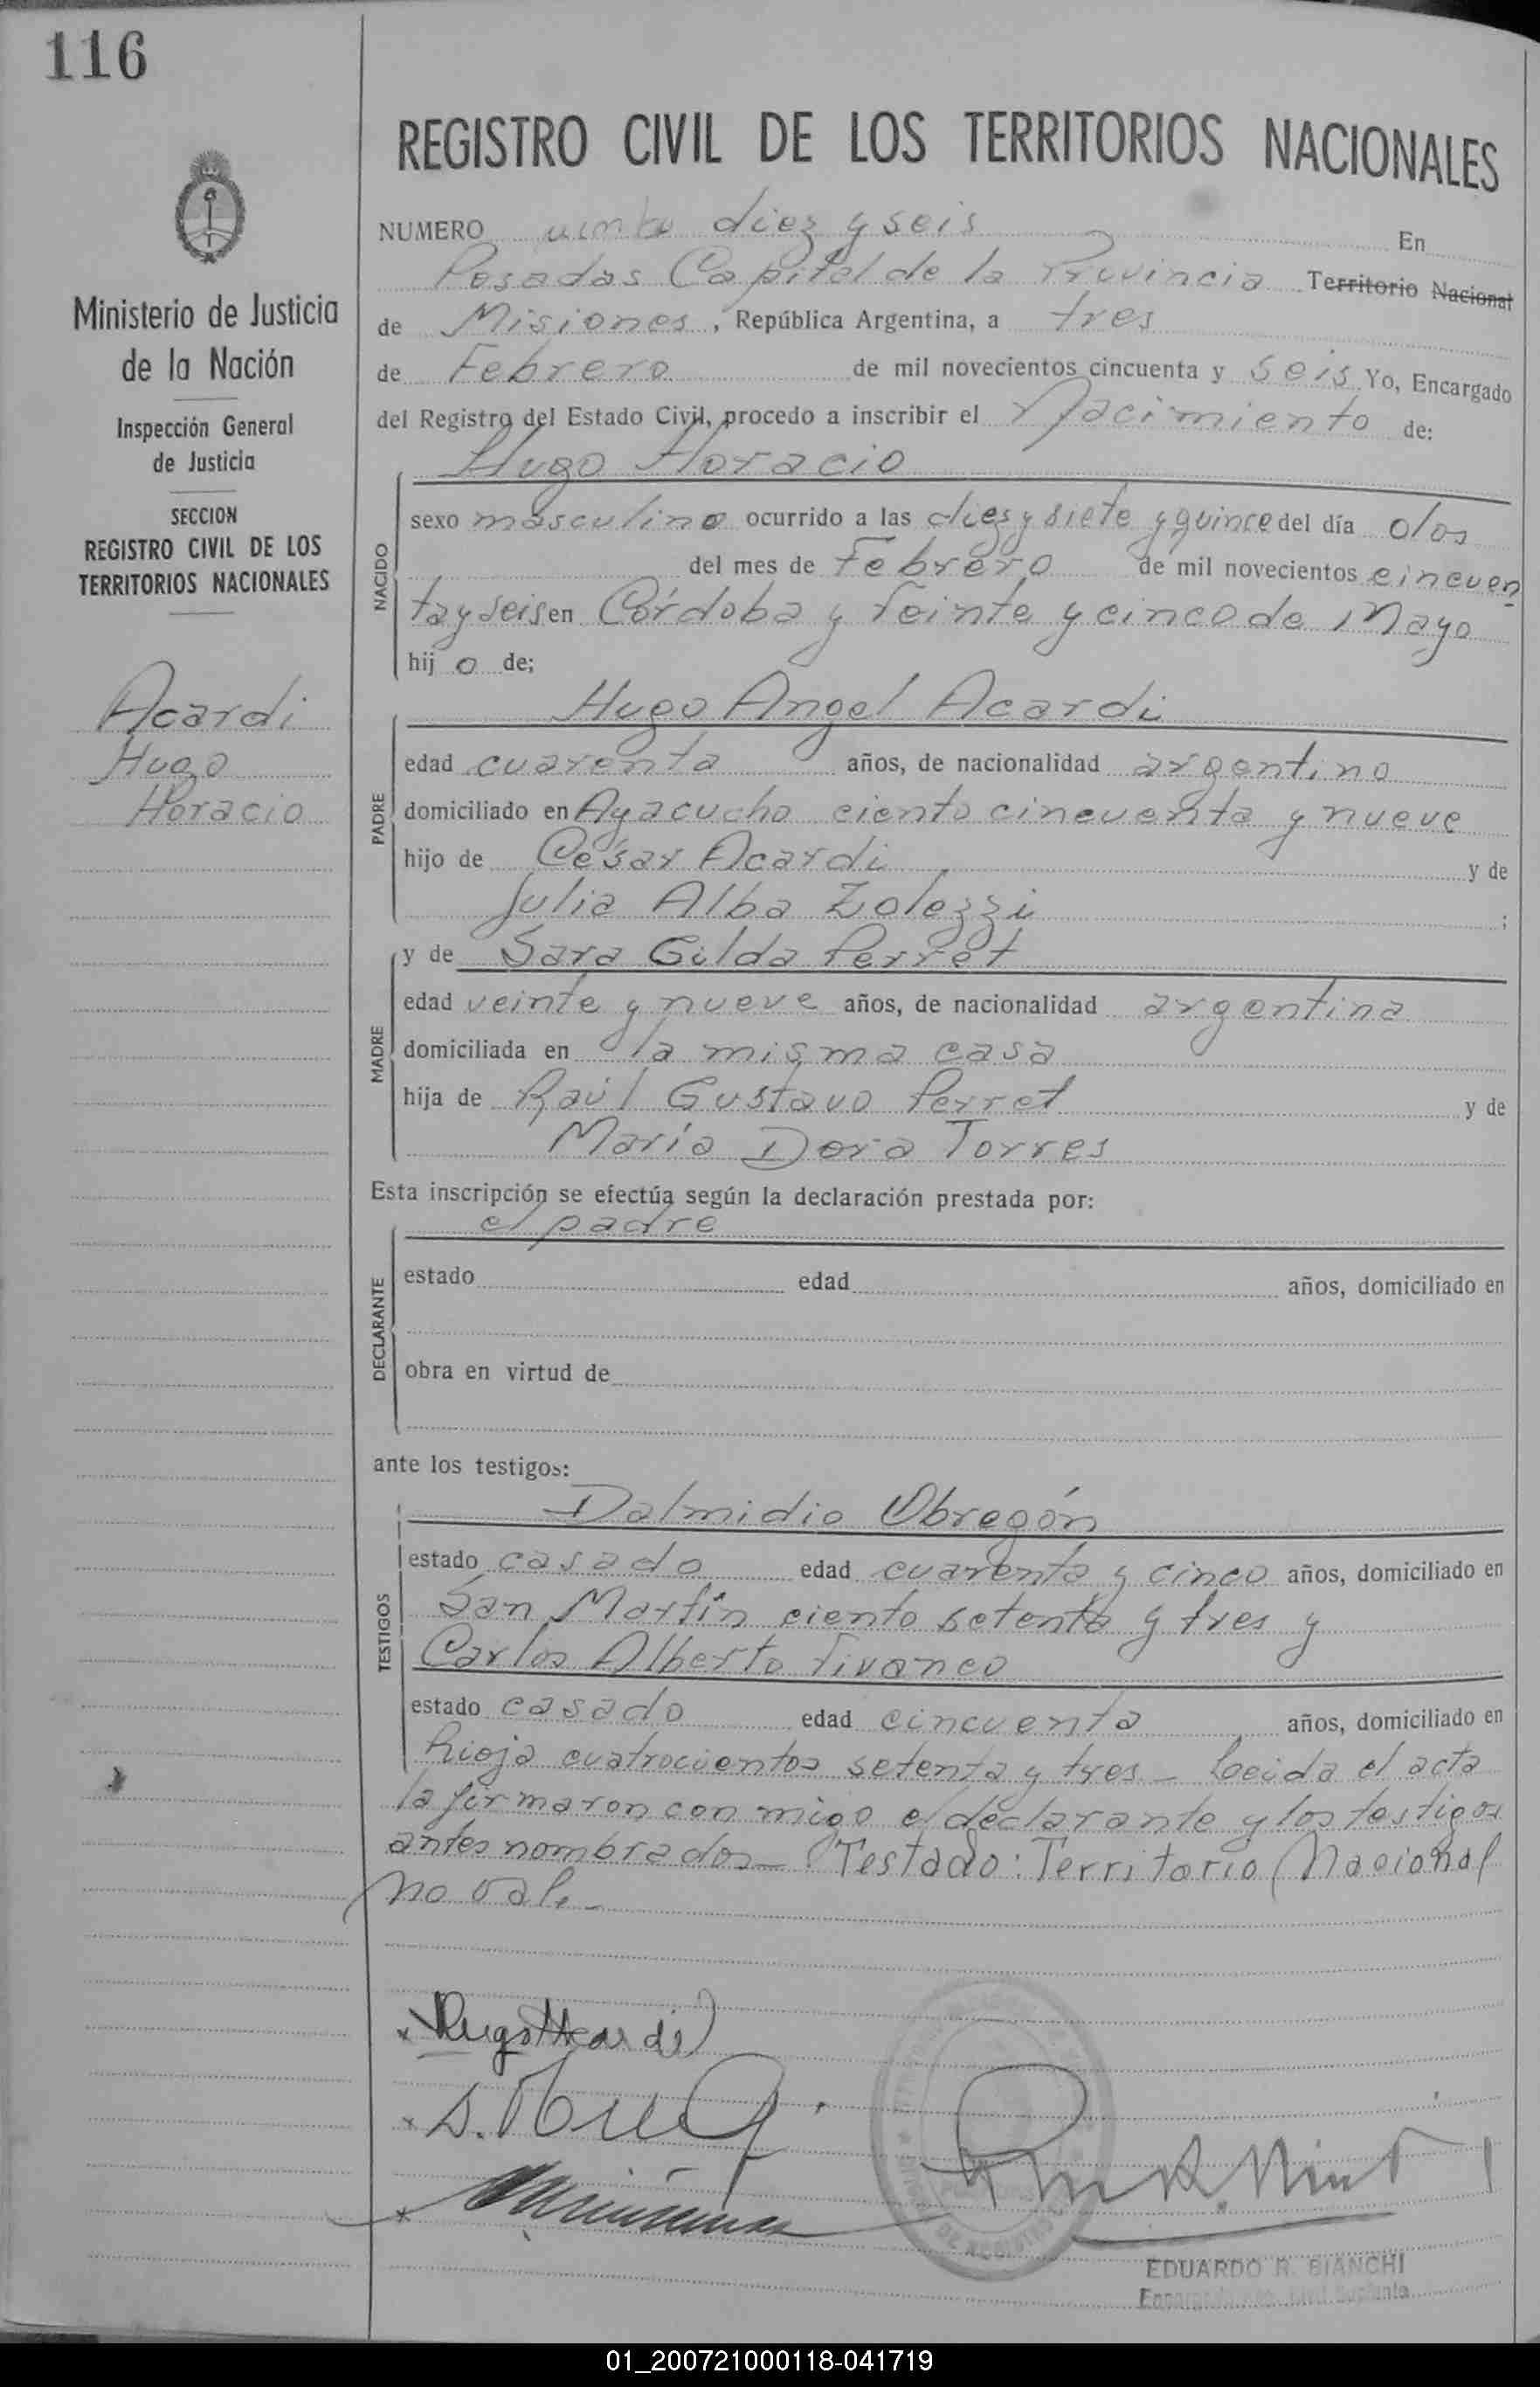 116
REGISTRO CIVIL DE LOS TERRITORIOS NACIONALES
NUMERO ciento diez y seis En
Posadas Capital de la Provincia Territorio Nacional
de Misiones, República Argentina, a tres
de Febrero de mil novecientos cincuenta y seis Yo, Encargado
del Registro del Estado Civil, procedo a inscribir el Nacimiento de:
Hugo Horacio
NACIDO
sexo masculino ocurrido a las diez y siete y quince del día dos
del mes de Febrero de mil novecientos cincuen
ta y seis en Córdoba y Veinte y cinco de Mayo
hijo de;
Hugo Angel Acardi
PADRE
edad cuarenta años, de nacionalidad argentino
domiciliado en Ayacucho ciento cincuenta y nueve
hijo de César Acardi y de
Julia Alba Zolezzi ;
y de Sara Gilda Perret
MADRE
edad veinte y nueve años, de nacionalidad argentina
domiciliada en la misma casa
hija de Raúl Gustavo Perret y de
María Dora Torres
Esta inscripción se efectúa según la declaración prestada por:
el padre
DECLARANTE
estado edad años, domiciliado en
obra en virtud de
ante los testigos:
Dalmidio Obregón
TESTIGOS
estado casado edad cuarenta y cinco años, domiciliado en
San Martín ciento setenta y tres y
Carlos Alberto Vivanco
estado casado edad cincuenta años, domiciliado en
Rioja cuatrocientos setenta y tres - Leida el acta
la firmaron con migo el declarante y los testigos
antes nombrados - Testado: Territorio Nacional
no vale -
Hugo Acardi
EDUARDO R. BIANCHI
Ministerio de Justicia
de la Nación
Inspección General
de Justicia
SECCION
REGISTRO CIVIL DE LOS
TERRITORIOS NACIONALES
Acardi
Hugo
Horacio
01_200721000118-041719